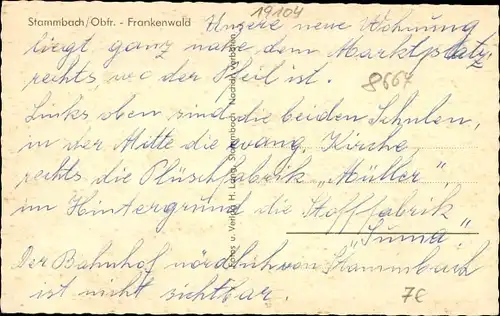 Stammbach/Obfr. - Frankenwald
19104
Unsere neue Wohnung
liegt ganz nahe dem Marktplatz
rechts, wo der Pfeil ist.
8667
Links oben sind die beiden Schulen,
in der Mitte die evang. Kirche,
rechts die Plüschfabrik „Müller",
im Hintergrund die Stofffabrik
„Suma".
Der Bahnhof nördlich von Stammbach
ist nicht sichtbar.
7€
Fotos u. Verlag H. Lang, Stammbach Nachdr. verboten